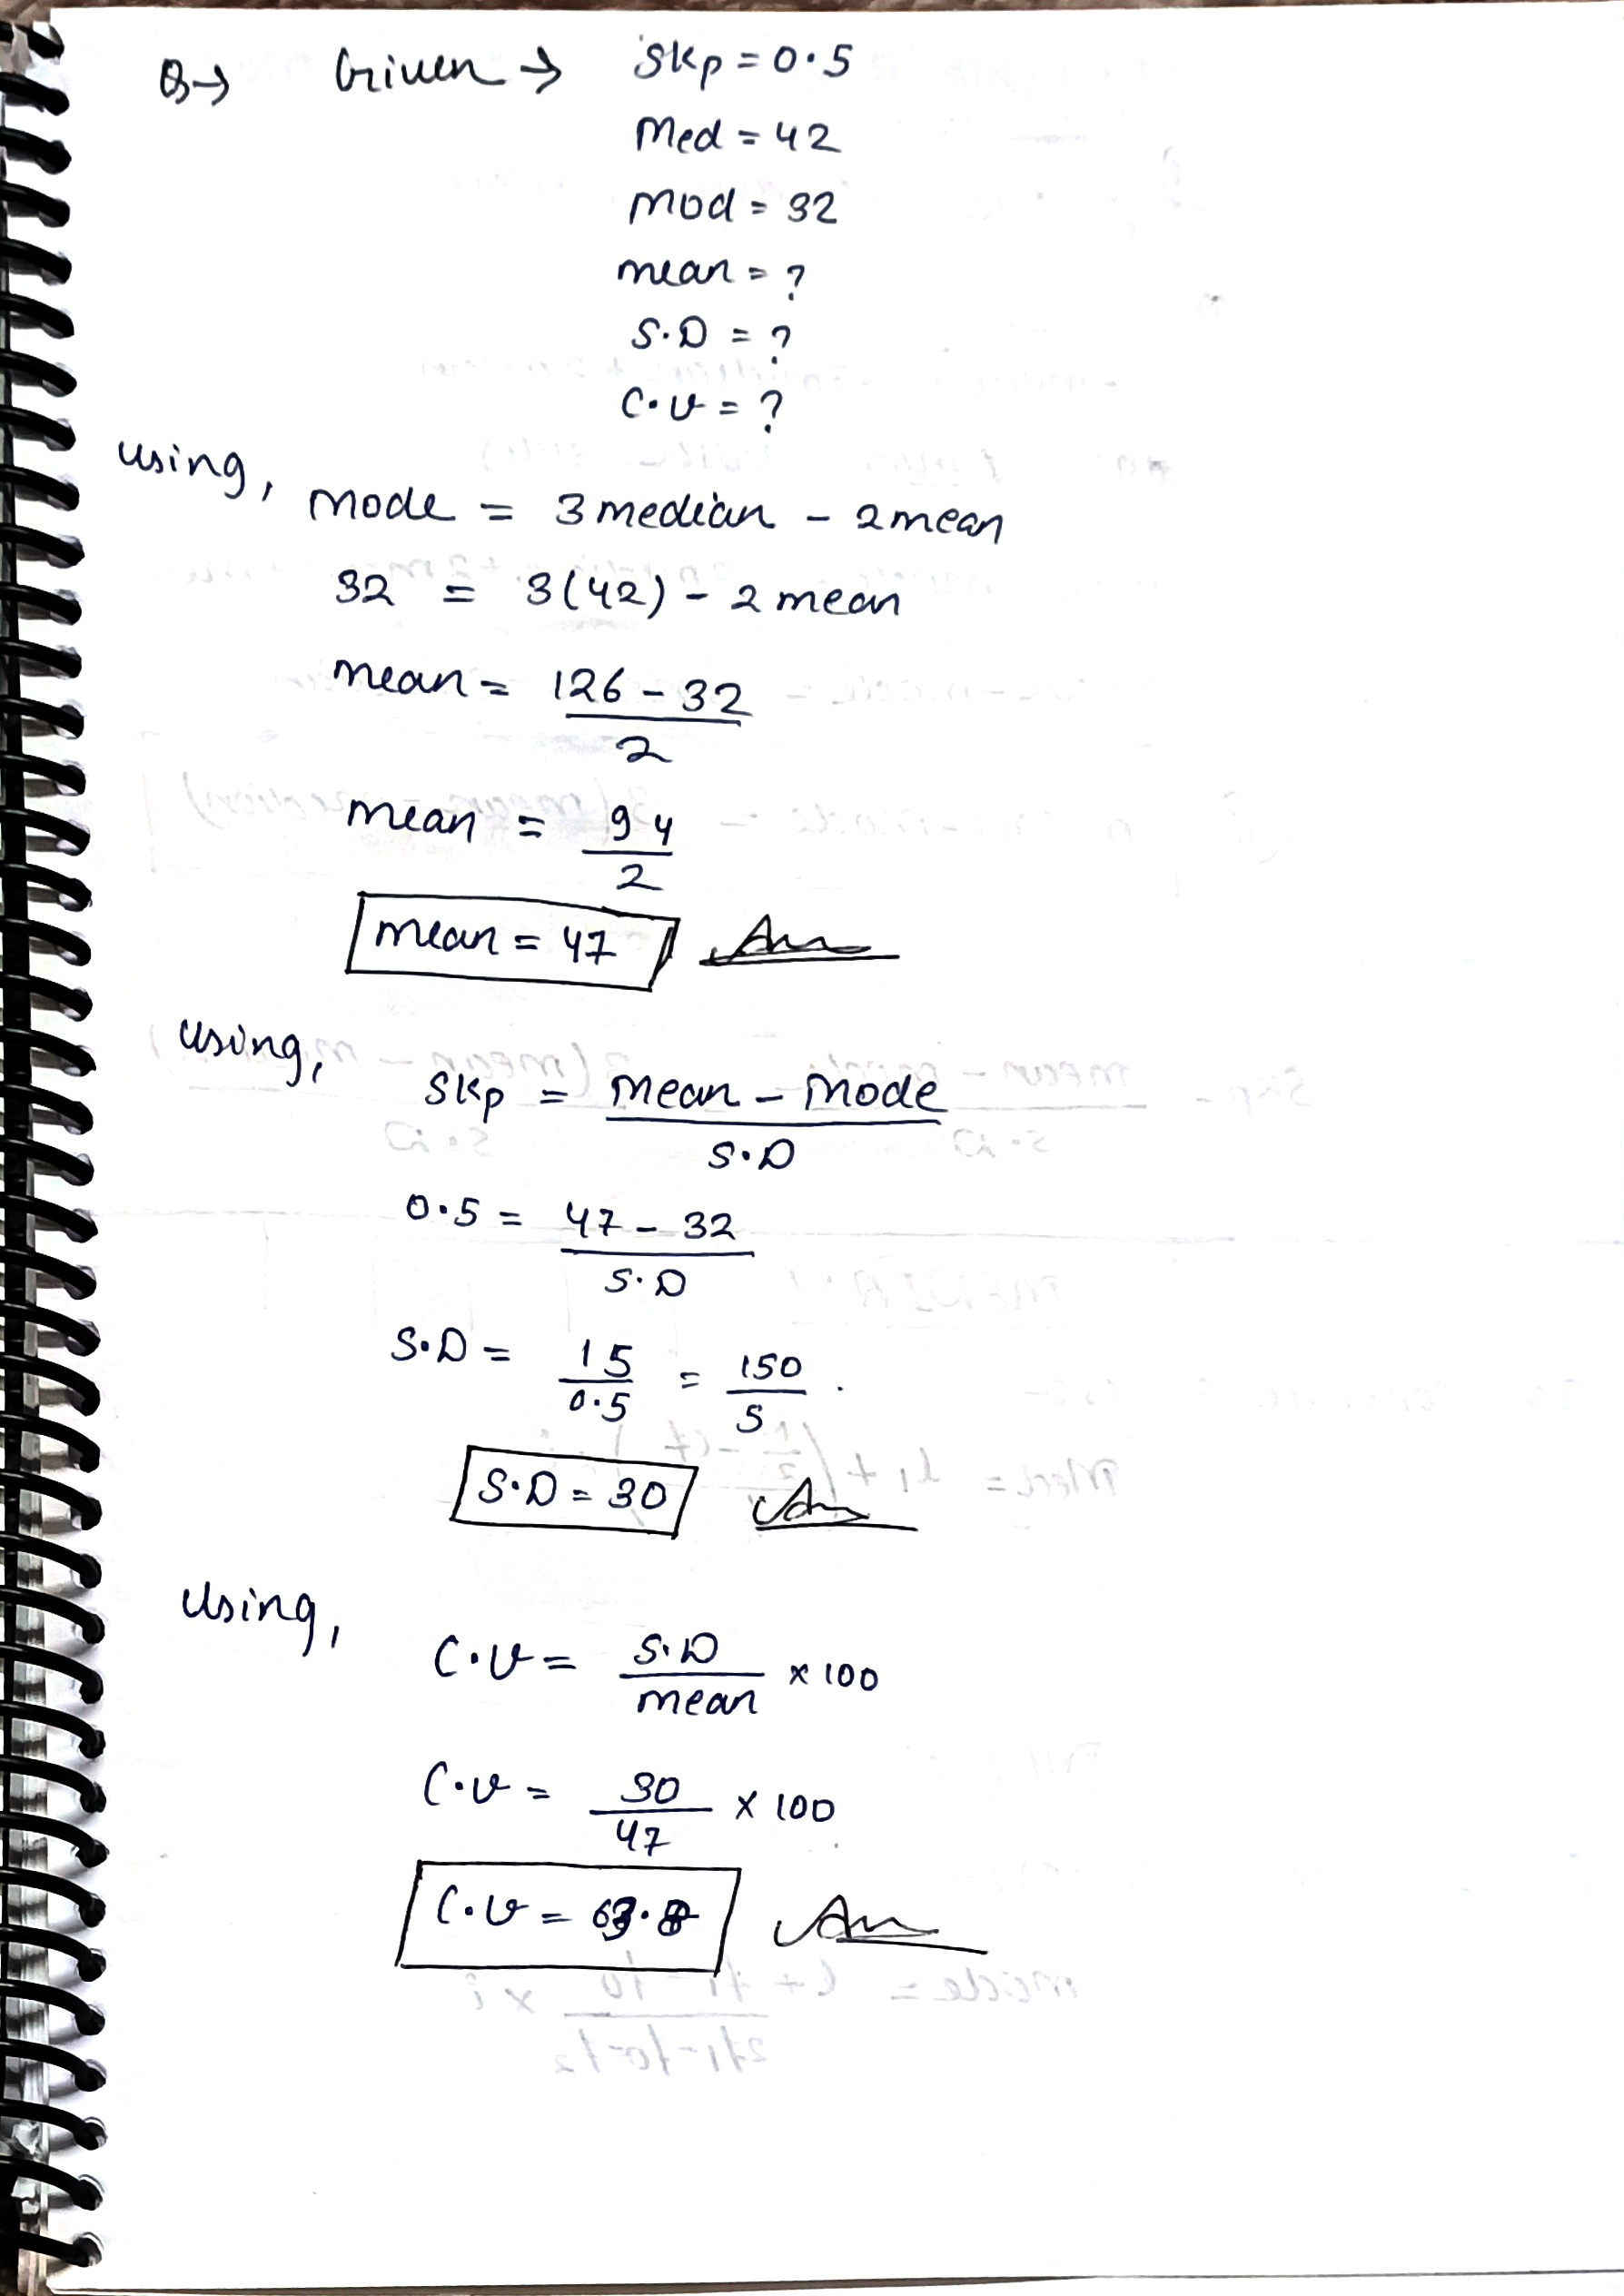 Q→ Given → Skp = 0.5
Med = 42
Mod = 32
mean = ?
S.D = ?
C.V = ?
using,
mode = 3 median - 2 mean
32 = 3(42) - 2 mean
mean = 126 - 32
2
mean = 94
2
mean = 47 Ans
using,
Skp = mean - mode
S.D
0.5 = 47 - 32
S.D
S.D = 15 = 150
0.5 5
S.D = 30 Ans
Using,
C.V = S.D × 100
mean
C.V = 30 × 100
47
C.V = 63.8 Ans